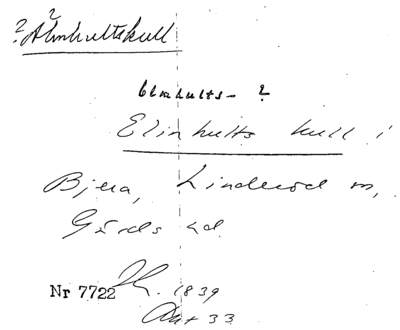 ? ?
Älmhultskull
Elmhults- ?
Elinhults kull i
Bjera, Linderöd sn,
Gärds hd
Nr 7722 1839
Akt 33